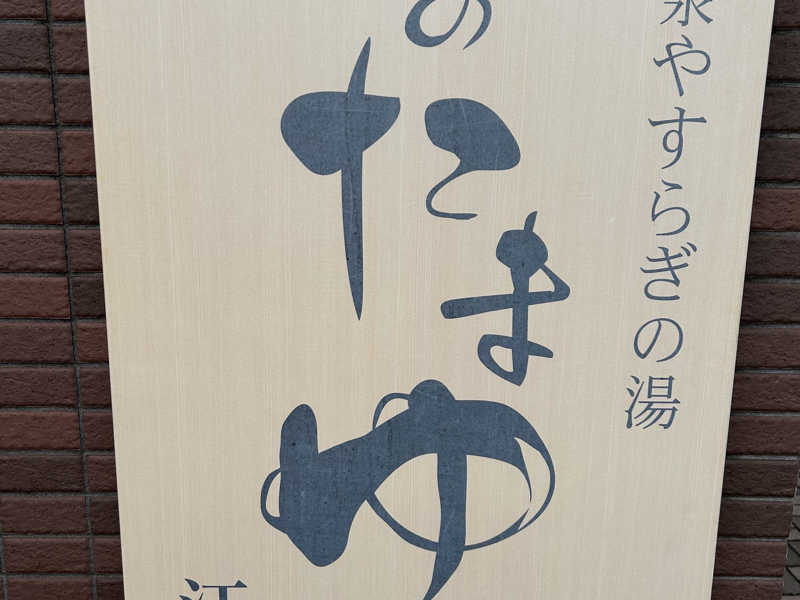 泉やすらぎの湯
のたまゆ
江